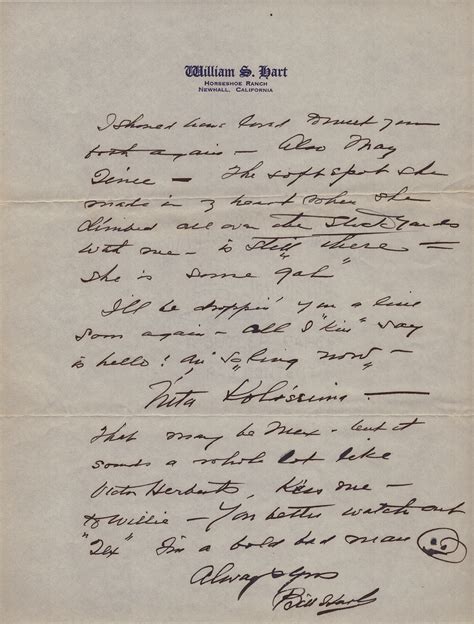 William S. Hart
Horseshoe Ranch
Newhall, California
I should have loved to meet you
both again – Also May
Tince – The soft spot she
made in my heart when she
climbed all over the Stock Yards
with me – is "still" there –
she is some "gal"
I'll be droppin' you a line
soon again – all I "kin" say
is hello! An' so long now –
That may be Mex – but it
sounds a whole lot like
Victor Herbert's, Kiss me –
to Willie – You better watch out
"Tex" I'm a bold bad man
Always yrs
Bill Hart